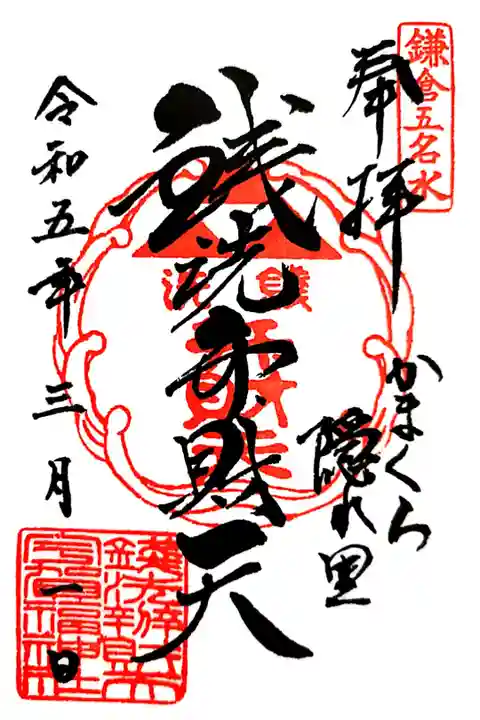 鎌倉五名水
奉拝
かまくら
隠れ里
銭洗弁財天
令和五年三月一日